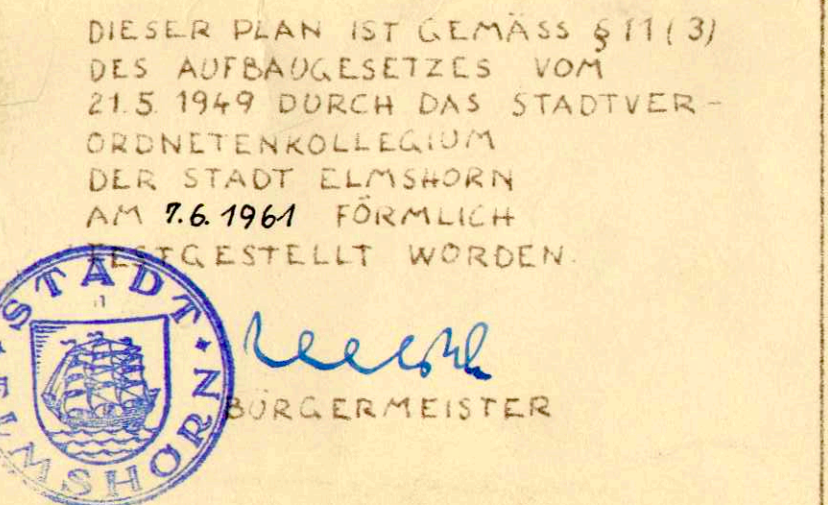 DIESER PLAN IST GEMÄSS § 11 (3)
DES AUFBAUGESETZES VOM
21.5.1949 DURCH DAS STADTVER-
ORDNETENKOLLEGIUM
DER STADT ELMSHORN
AM 7.6.1961 FÖRMLICH
FESTGESTELLT WORDEN.
STADT
ELMSHORN
BÜRGERMEISTER